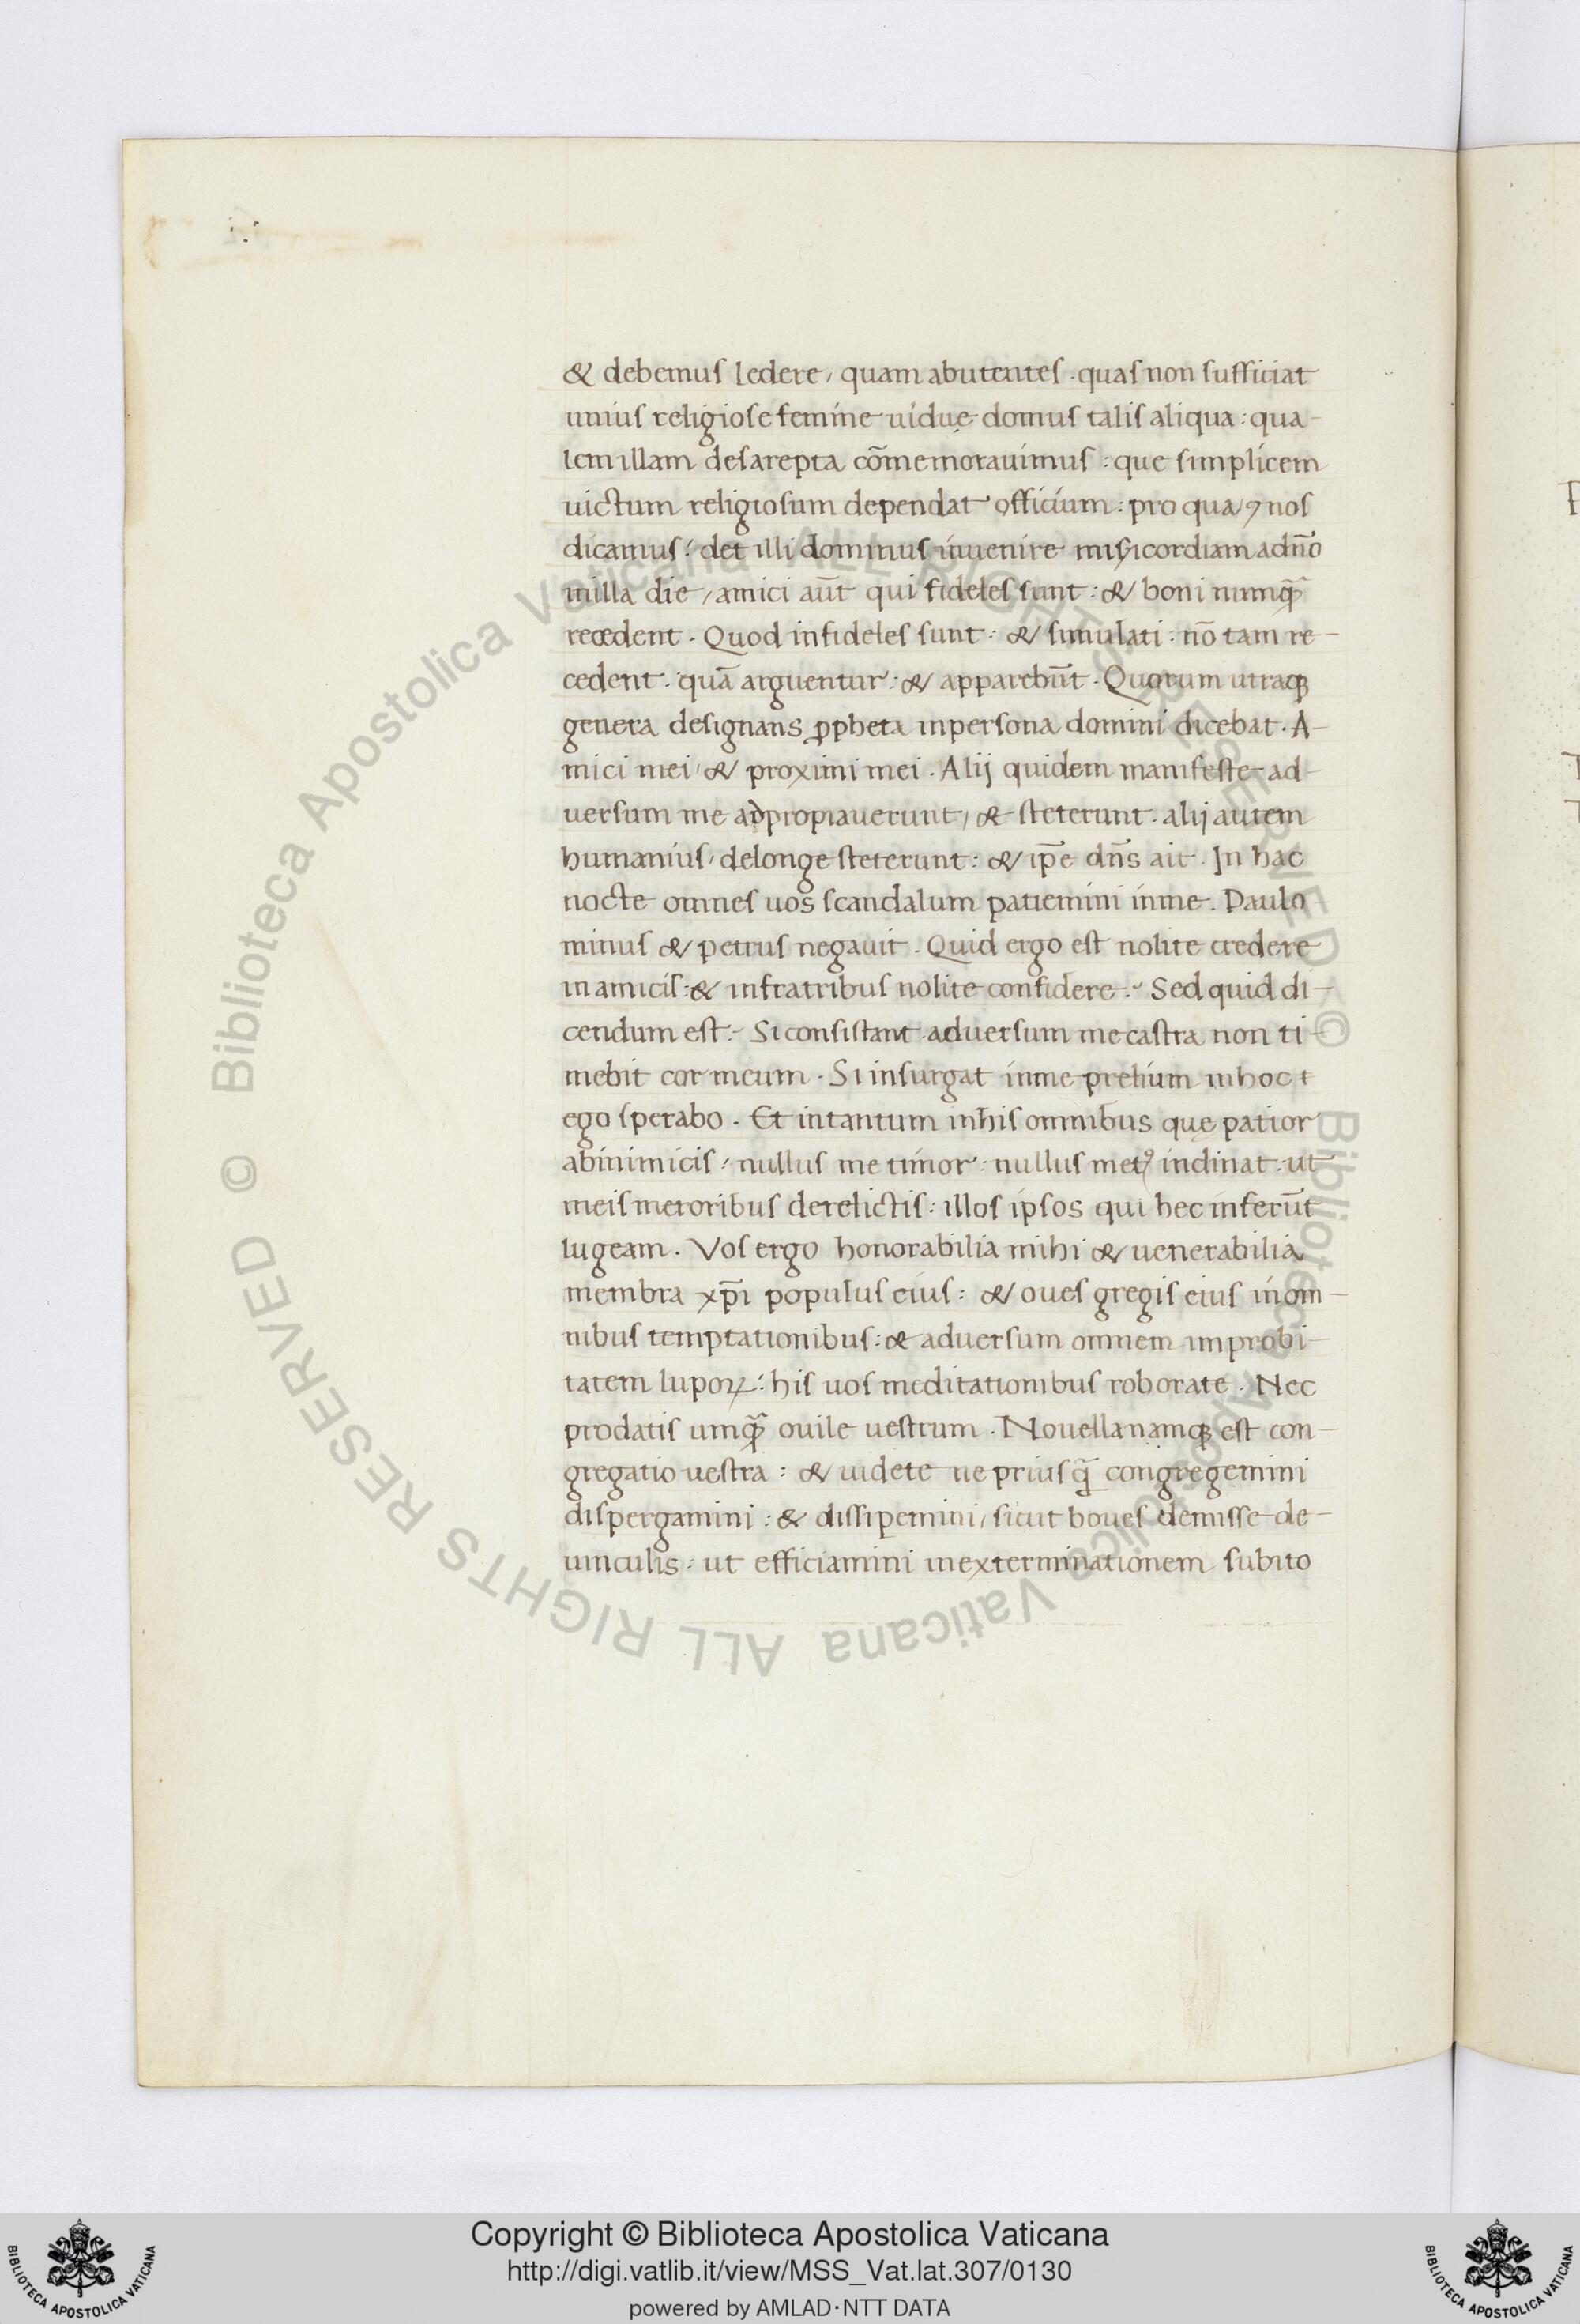 & debemus ledere, quam abutentes. quas non sufficiat
unius religiose femine uidue domus talis aliqua: qua-
lem illam desarepta cōmemorauimus: que simplicem
uictum religiosum dependat officium: pro qua, & nos
dicamus: det illi dominus inuenire misericordiam adn̄o
inilla die, amici aūt qui fideles sunt: & boni numq̃
recedent. Quod infideles sunt: & simulati: nō tam re-
cedent. quā arguentur: & apparebūt. Quorum utraq;
genera designans ꝓpheta inpersona domini dicebat. A-
mici mei, & proximi mei. Alij quidem manifeste ad-
uersum me adpropiauerunt, & steterunt. alij autem
humanius, delonge steterunt: & ip̄e dn̄s ait. In hac
nocte omnes uos scandalum patiemini inme. Paulo
minus & petrus negauit. Quid ergo est nolite credere
inamicis: & infratribus nolite confidere: Sed quid di-
cendum est: Si consistant aduersum me castra non ti-
mebit cor meum. Si insurgat inme prelium inhoc t
ego sperabo. Et intantum inhis omnibus que patior
abinimicis: nullus me timor: nullus metꝰ inclinat: ut
meis meroribus derelictis: illos ipsos qui hec inferūt
lugeam. Vos ergo honorabilia mihi & uenerabilia
membra xp̄i populus eius: & oues gregis eius inom-
nibus temptationibus: & aduersum omnem improbi-
tatem lupoꝝ: his uos meditationibus roborate. Nec
prodatis umq̃ ouile uestrum. Nouella namq; est con-
gregatio uestra: & uidete ne priusq̃ congregemini
dispergamini: & dissipemini, sicut boues demisse de-
uinculis: ut efficiamini inexterminationem subito
© Biblioteca Apostolica Vaticana ALL RIGHTS RESERVED © Biblioteca Apostolica Vaticana ALL RIGHTS RESERVED
Copyright © Biblioteca Apostolica Vaticana
http://digi.vatlib.it/view/MSS_Vat.lat.307/0130
powered by AMLAD·NTT DATA
BIBLIOTECA APOSTOLICA VATICANA
BIBLIOTECA APOSTOLICA VATICANA